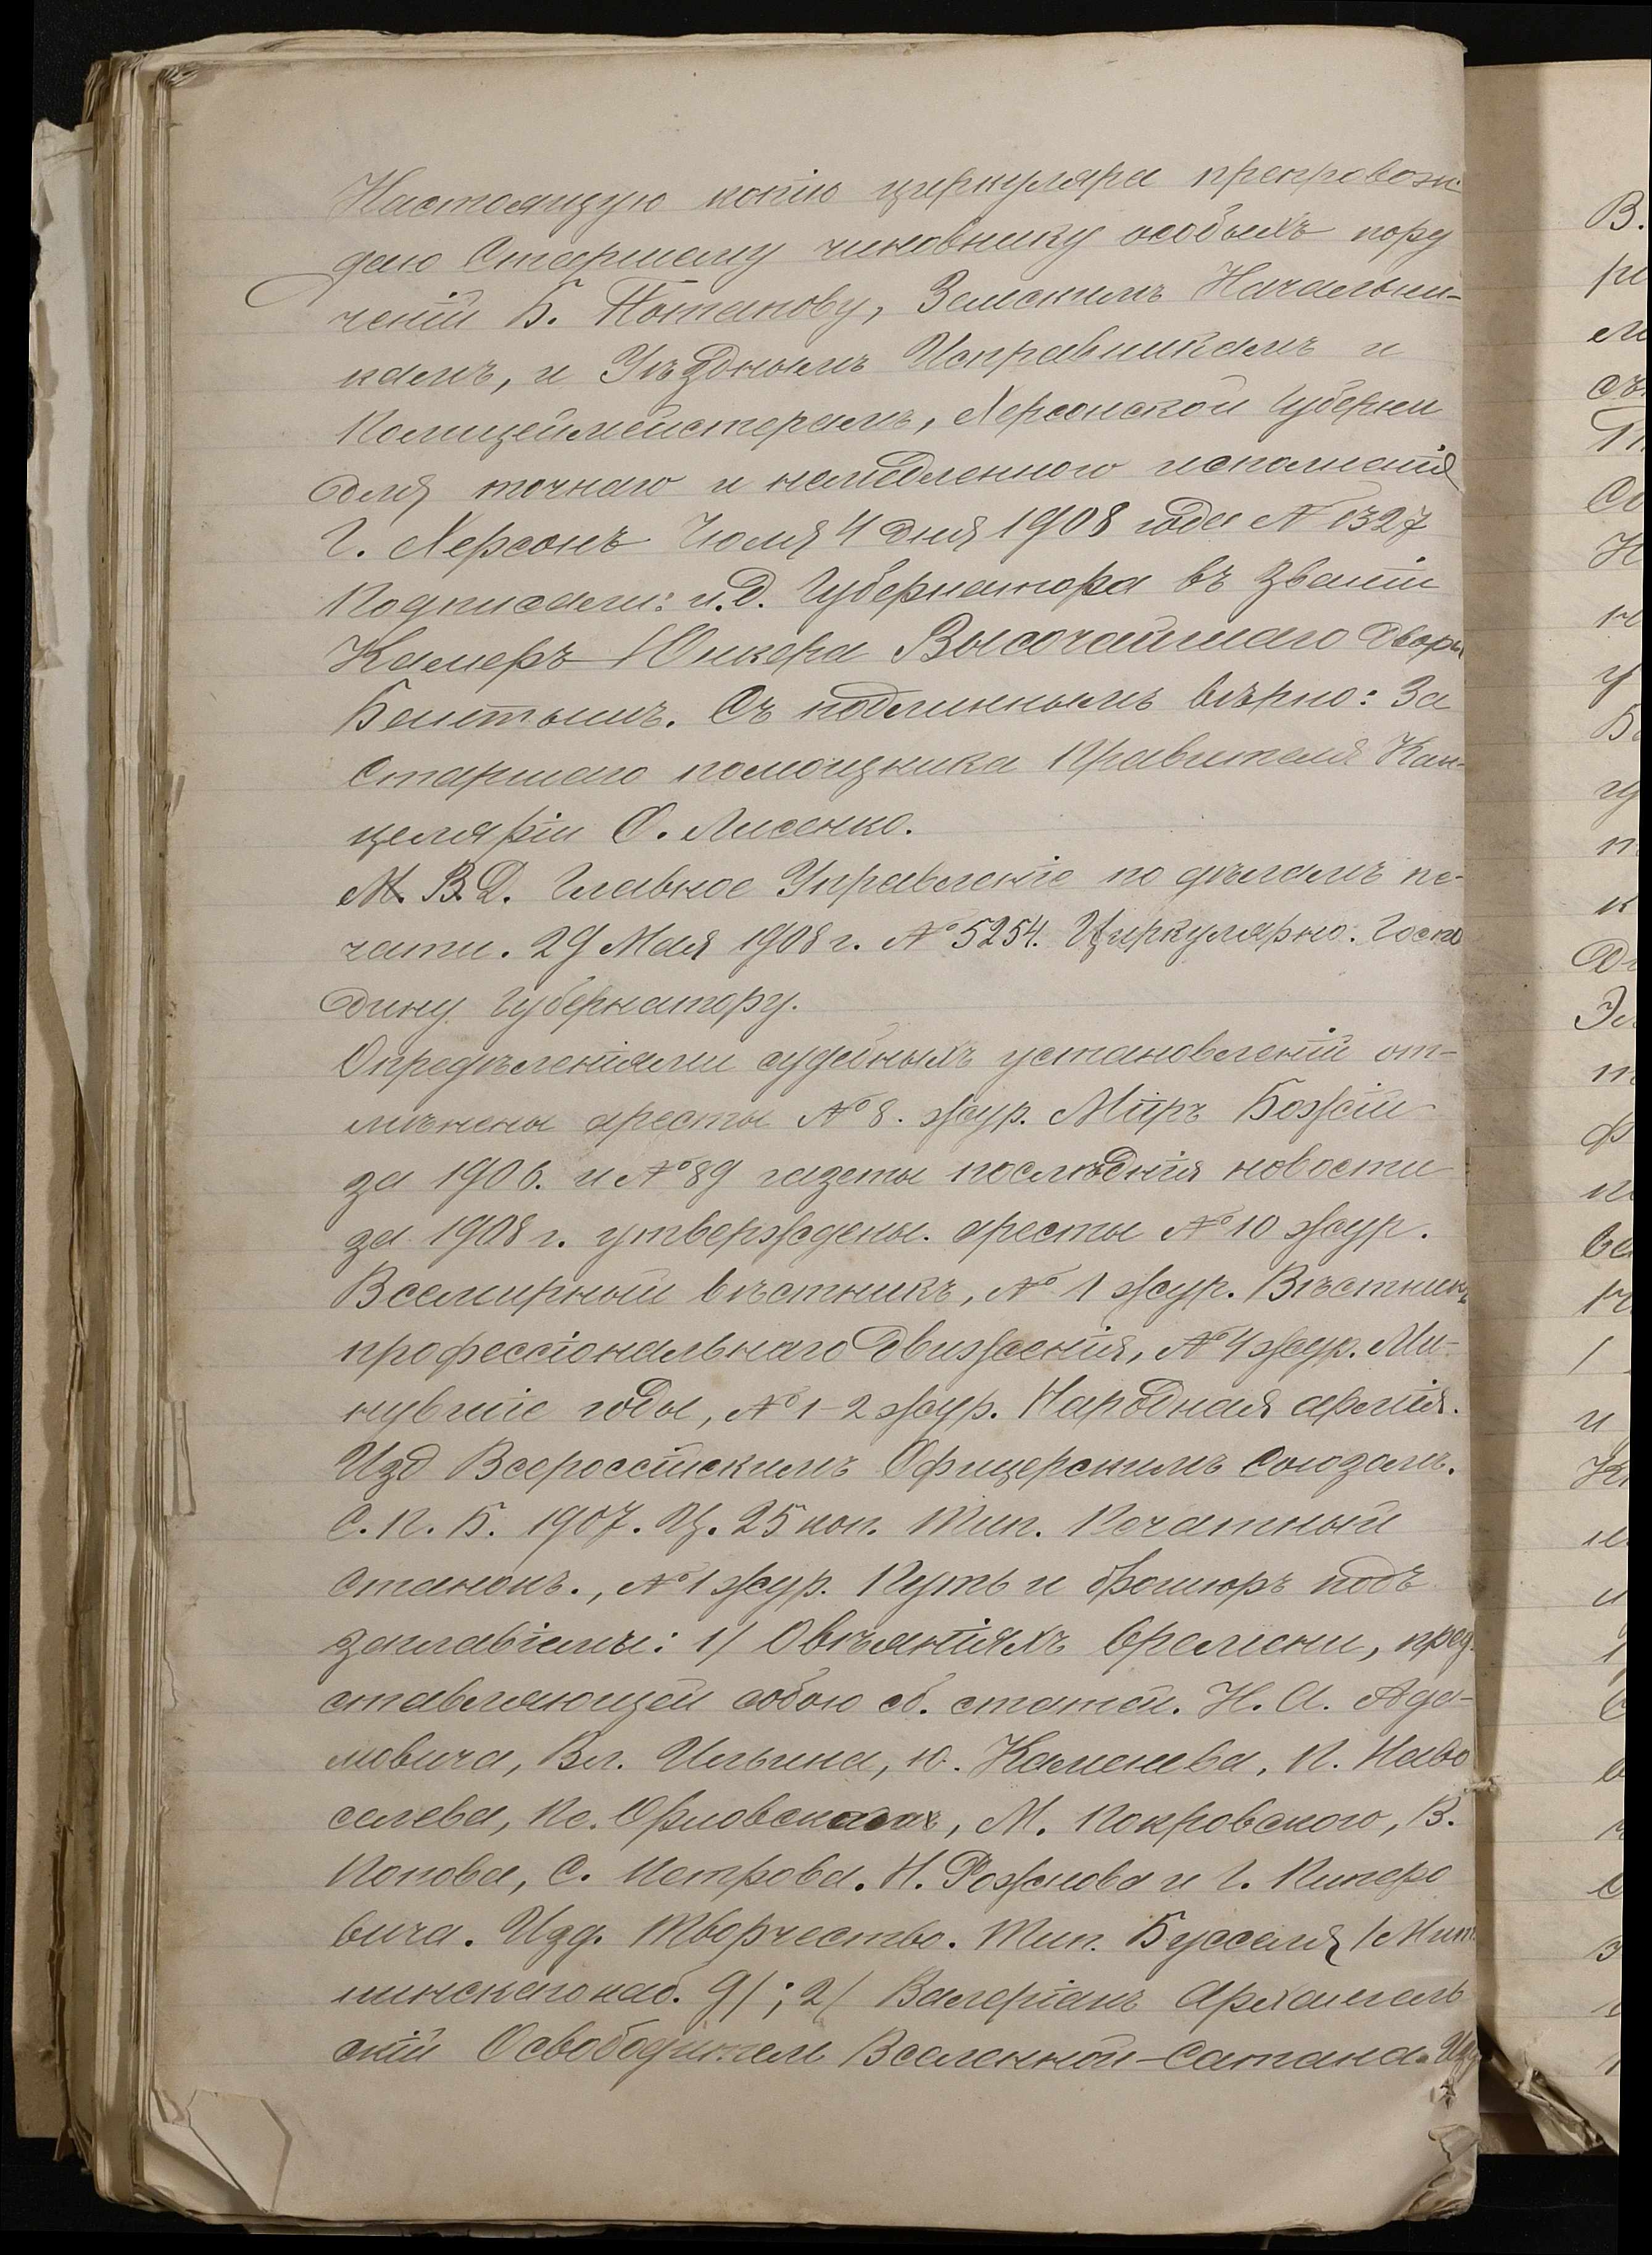 Настоящую копію циркуляра препровож-
даю Старшему чиновнику особыхъ пору
ченій Б. Потапову, Земскимъ Начальни-
камъ, и Уѣзднымъ Исправникамъ и
Полицеймейстерамъ, Херсонской Губерніи
для точнаго и немедленнаго исполненія
Г. Херсонъ Іюля 4 дня 1908 года № 1327
Подписали: и.д. Губернатора въ званіи
Камеръ-Юнкера Высочайшаго Двора
Бантышъ. Съ подлиннымъ вѣрно: За
Старшаго помощника Правителя Кан-
целяріи О. Лисенко.
М. В. Д. Главное Управленіе по дѣламъ пе-
чати. 29 Мая 1908 г. № 5254. Циркулярно. Госпо
дину Губернатору.
Опредѣленіями судебныхъ установленій от-
мѣнены аресты № 8. жур. Міръ Божій
за 1906. и № 89 газеты послѣднія новости
за 1908 г. утверждены. аресты № 10 жур.
Всемирный вѣстникъ, № 1 жур. Вѣстникъ
профессіональнаго движенія, № 4 жур. Ми-
нувшіе годы, № 1-2 жур. Народная армія.
Изд Всероссійскимъ Офицерскимъ Союзомъ.
С. П. Б. 1907. Ц. 25 коп. Тип. Печатный
Станокъ., № 1 жур. Путь и брошюръ подъ
заглавіемъ: 1/ О вѣяніяхъ времени, пред-
ставляющей собою сб. статей. Н. А. Ада-
мовича, Вл. Ильина, Ю. Каменева, П. Наво
селева, Пс. Орловскаго, М. Покровскаго, В.
Попова, С. Петрова. Н. Рожкова и Г. Пиперо
вича. Изд. Творчество. Тип. Бусселя /Мыт
нинская наб. 9/; 2/ Валеріанъ Архангель
скій Освободитель Вселенной-Сатана. Изд